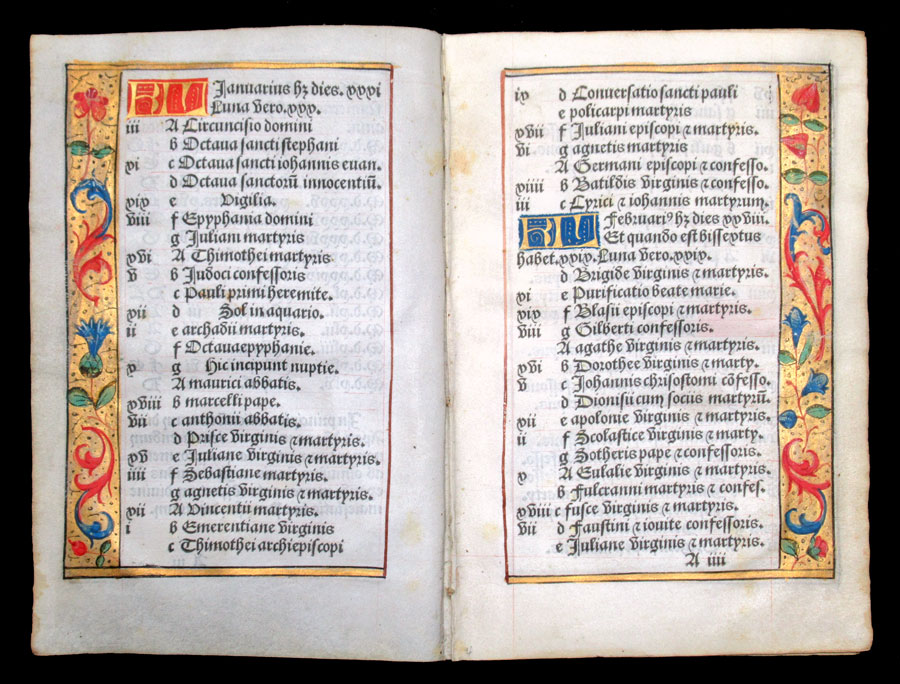 KL Januarius hꝫ dies. xxxi
Luna vero. xxx.
iii A Circuncisio domini
b Octava sancti stephani
xi c Octava sancti iohannis evan.
d Octava sanctorū innocentiū.
xix e Vigilia.
viii f Epyphania domini
g Juliani martyris
xvi A Thimothei martyris
v b Judoci confessoris
c Pauli primi heremite.
xiii d Sol in aquario.
ii e archadii martyris.
f Octava epyphanie.
x g Hic incipunt nuptie.
A maurici abbatis.
xviii b marcelli pape.
vii c anthonii abbatis.
d Prisce virginis ⁊ martyris.
xv e Juliane virginis ⁊ martyris.
iiii f Sebastiane martyris.
g agnetis virginis ⁊ martyris.
xii A Vincentii martyris.
i b Emerentiane virginis
c Thimothei archiepiscopi
ix d Conversatio sancti pauli
e policarpi martyris
xvii f Juliani episcopi ⁊ martyris.
vi g agnetis martyris
A Germani episcopi ⁊ confesso.
xiiii b Batildis virginis ⁊ confesso.
iii c Cyrici ⁊ iohannis martyrum.
KL Februariꝰ hꝫ dies xxviii.
Et quando est bissextus
habet. xxix. Luna vero. xxix.
d Brigide virginis ⁊ martyris.
xi e Purificatio beate marie.
xix f Blasii episcopi ⁊ martyris.
viii g Gilberti confessoris.
A agathe virginis ⁊ martyris.
xvi b Dorothee virginis ⁊ marty.
v c Johannis chrisostomi cōfesso.
d Dionisii cum sociis martyrū.
xiii e apolonie virginis ⁊ martyris.
ii f Scolastice virginis ⁊ marty.
g Sotheris pape ⁊ confessoris.
x A Eulalie virginis ⁊ martyris.
b Fulcranni martyris ⁊ confes.
xviii c fusce virginis ⁊ martyris.
vii d Faustini ⁊ iovite confessoris.
e Juliane virginis ⁊ martyris.
A iiii